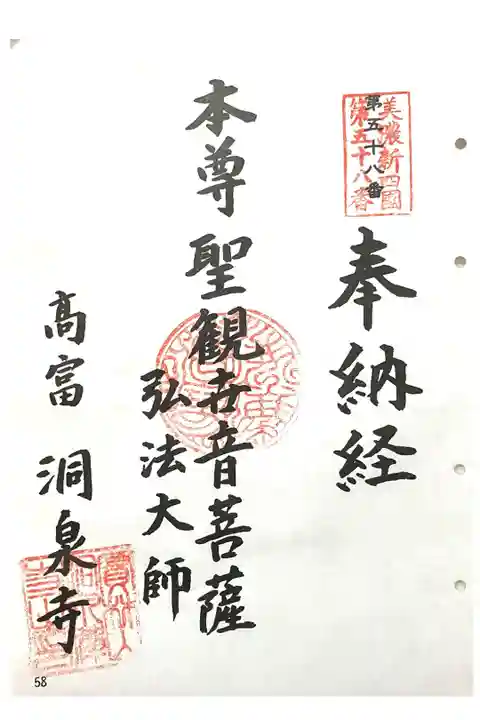 美濃新四國
第五十八番
第五十八番
奉納経
本尊聖観世音菩薩
弘法大師
高富 洞泉寺
58